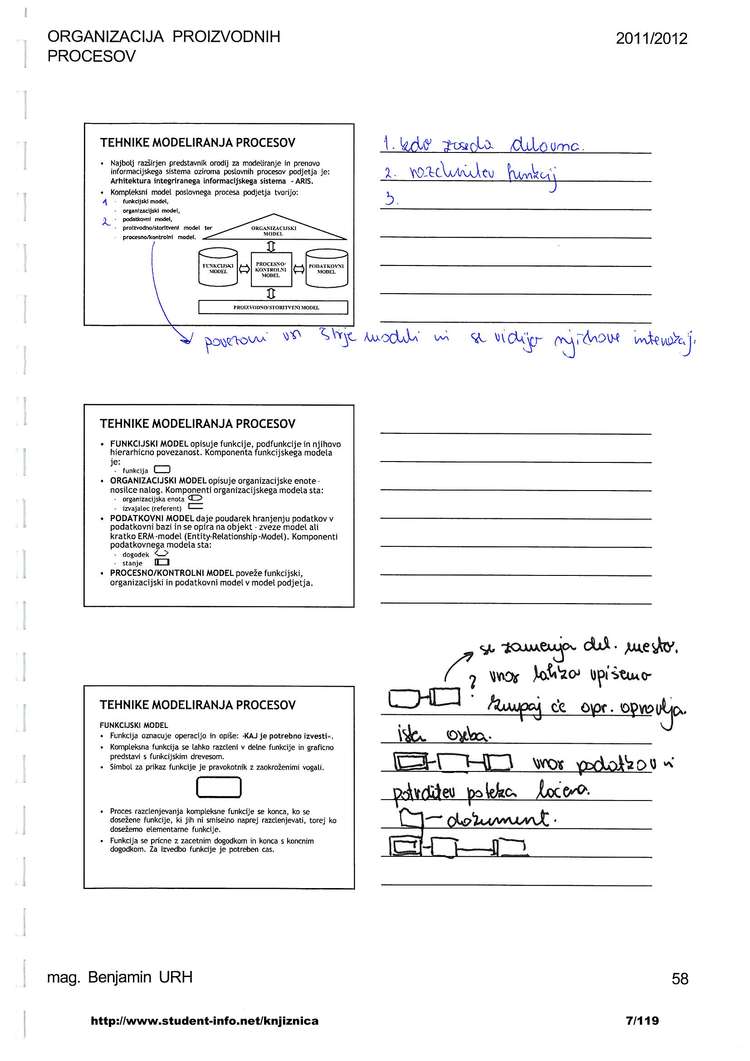 ORGANIZACIJA PROIZVODNIH
PROCESOV
2011/2012
TEHNIKE MODELIRANJA PROCESOV
• Najbolj razširjen predstavnik orodij za modeliranje in prenovo
informacijskega sistema oziroma poslovnih procesov podjetja je:
Arhitektura integriranega informacijskega sistema - ARIS.
• Kompleksni model poslovnega procesa podjetja tvorijo:
1 - funkcijski model,
- organizacijski model,
2 - podatkovni model,
- proizvodno/storitveni model ter
- procesno/kontrolni model.
ORGANIZACIJSKI
MODEL
FUNKCIJSKI
MODEL
PROCESNO-
KONTROLNI
MODEL
PODATKOVNI
MODEL
PROIZVODNO/STORITVENI MODEL
1. kdo zaseda delovna.
2. razčlenitev funkcij
3.
povezani vsi štirje modeli in se vidijo njihove
TEHNIKE MODELIRANJA PROCESOV
• FUNKCIJSKI MODEL opisuje funkcije, podfunkcije in njihovo
hierarhicno povezanost. Komponenta funkcijskega modela
je:
- funkcija
• ORGANIZACIJSKI MODEL opisuje organizacijske enote -
nosilce nalog. Komponenti organizacijskega modela sta:
- organizacijska enota
- izvajalec (referent)
• PODATKOVNI MODEL daje poudarek hranjenju podatkov v
podatkovni bazi in se opira na objekt - zveze model ali
kratko ERM -model (Entity-Relationship -Model). Komponenti
podatkovnega modela sta:
- dogodek
- stanje
• PROCESNO/KONTROLNI MODEL poveže funkcijski,
organizacijski in podatkovni model v model podjetja.
TEHNIKE MODELIRANJA PROCESOV
FUNKCIJSKI MODEL
• Funkcija oznacuje operacijo in opiše: »KAJ je potrebno izvesti«.
• Kompleksna funkcija se lahko razcleni v delne funkcije in graficno
predstavi s funkcijskim drevesom.
• Simbol za prikaz funkcije je pravokotnik z zaokroženimi vogali.
• Proces razclenjevanja kompleksne funkcije se konca, ko se
dosežene funkcije, ki jih ni smiselno naprej razclenjevati, torej ko
dosežemo elementarne funkcije.
• Funkcija se pricne z zacetnim dogodkom in konca s koncnim
dogodkom. Za izvedbo funkcije je potreben cas.
se zamenja del. mesto.
? vnos lahko vpišemo
skupaj če opr. opravlja
ista oseba.
vnos podatkov in
potrditev poteka ločeno.
- dokument.
mag. Benjamin URH
58
http://www.student-info.net/knjiznica
7/119